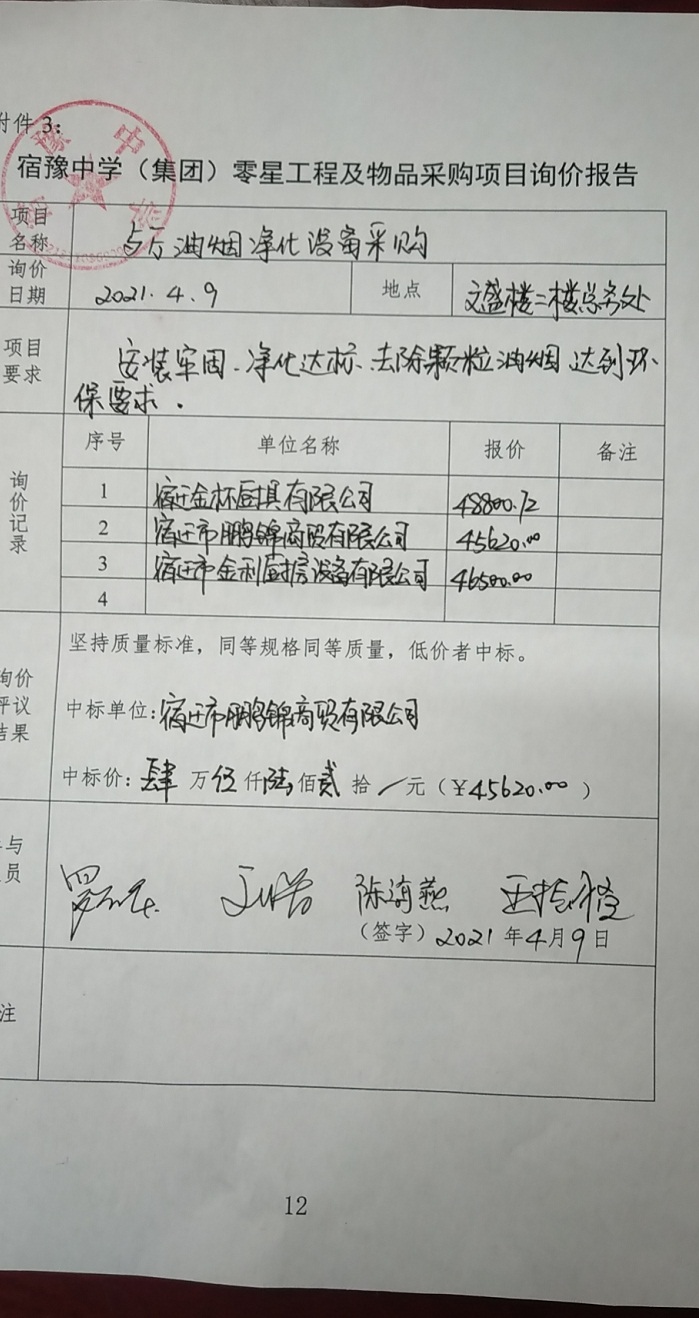 附件3:
宿豫中学（集团）零星工程及物品采购项目询价报告
项目名称 油烟净化设备采购
询价日期 2021.4.9 地点 文盛楼二楼总务处
项目要求 安装牢固、净化达标、去除颗粒油烟达到环
保要求.
询价记录
序号 单位名称 报价 备注
1 宿迁金杯厨具有限公司 48800.72
2 宿迁市鹏锦商贸有限公司 45620.00
3 宿迁市金利厨房设备有限公司 46500.00
4
询价评议结果
坚持质量标准，同等规格同等质量，低价者中标。
中标单位:宿迁市鹏锦商贸有限公司
中标价: 肆万伍仟陆佰贰拾/元（¥45620.00）
与
员
陈海燕
（签字）2021年4月9日
注
12